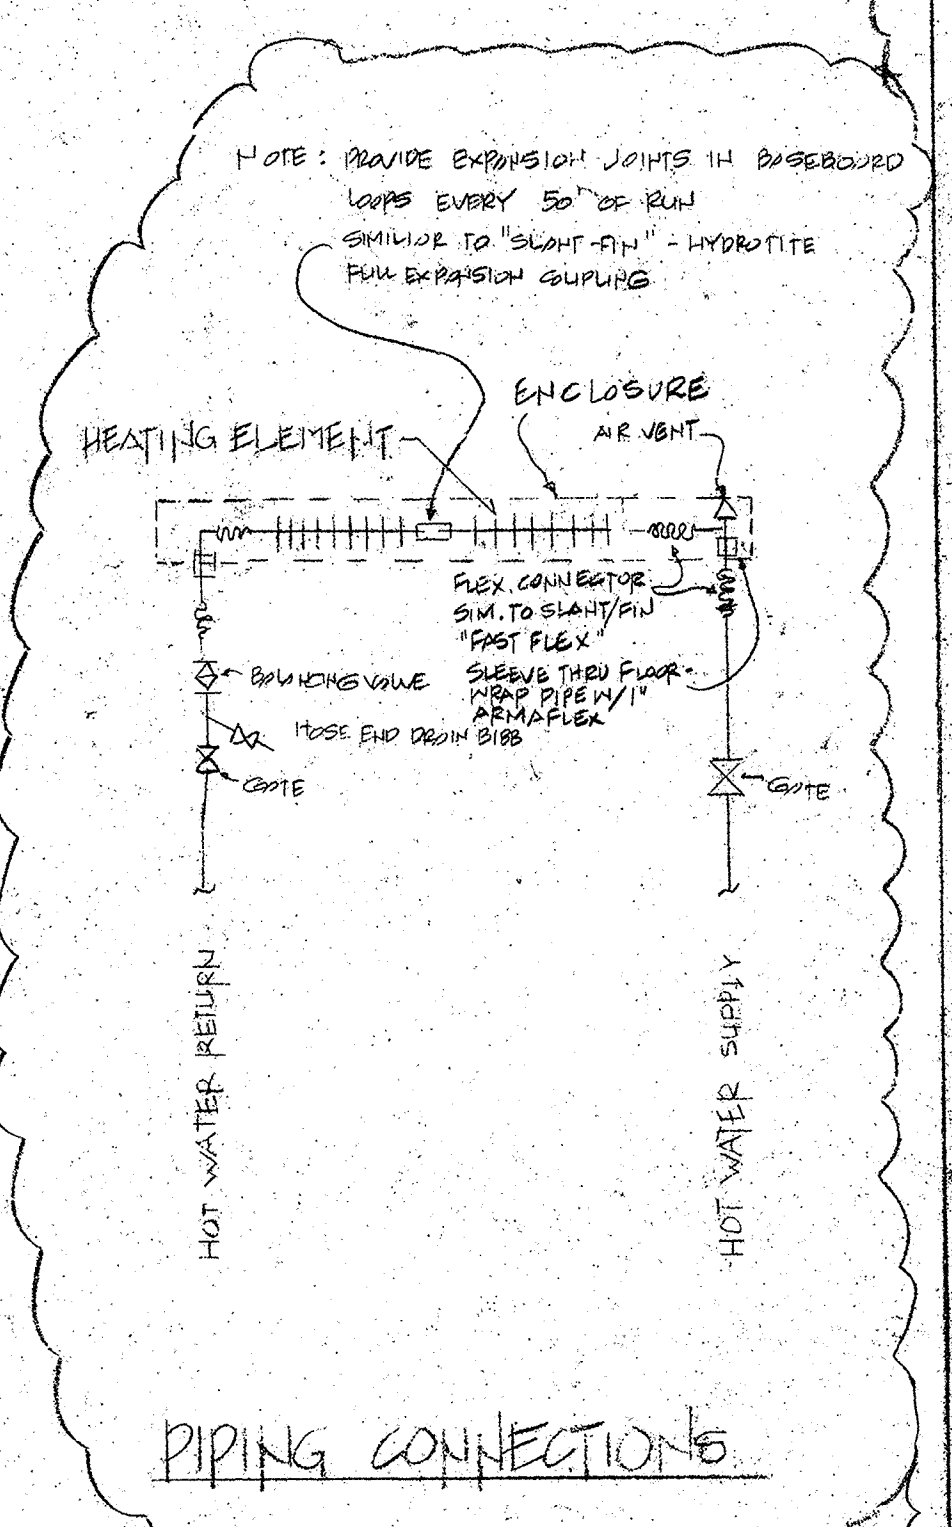 NOTE: PROVIDE EXPANSION JOINTS IN BASEBOARD
LOOPS EVERY 50' OF RUN
SIMILIAR TO "SLANT-FIN" - HYDROTITE
FULL EXPANSION COUPLING
ENCLOSURE
HEATING ELEMENT
AIR VENT
FLEX. CONNECTOR
SIM. TO SLANT/FIN
"FAST FLEX"
SLEEVE THRU FLOOR-
WRAP PIPE W/1"
ARMAFLEX
BALANCING VALVE
HOSE END DRAIN BIBB
GATE
GATE
HOT WATER RETURN
HOT WATER SUPPLY
PIPING CONNECTIONS